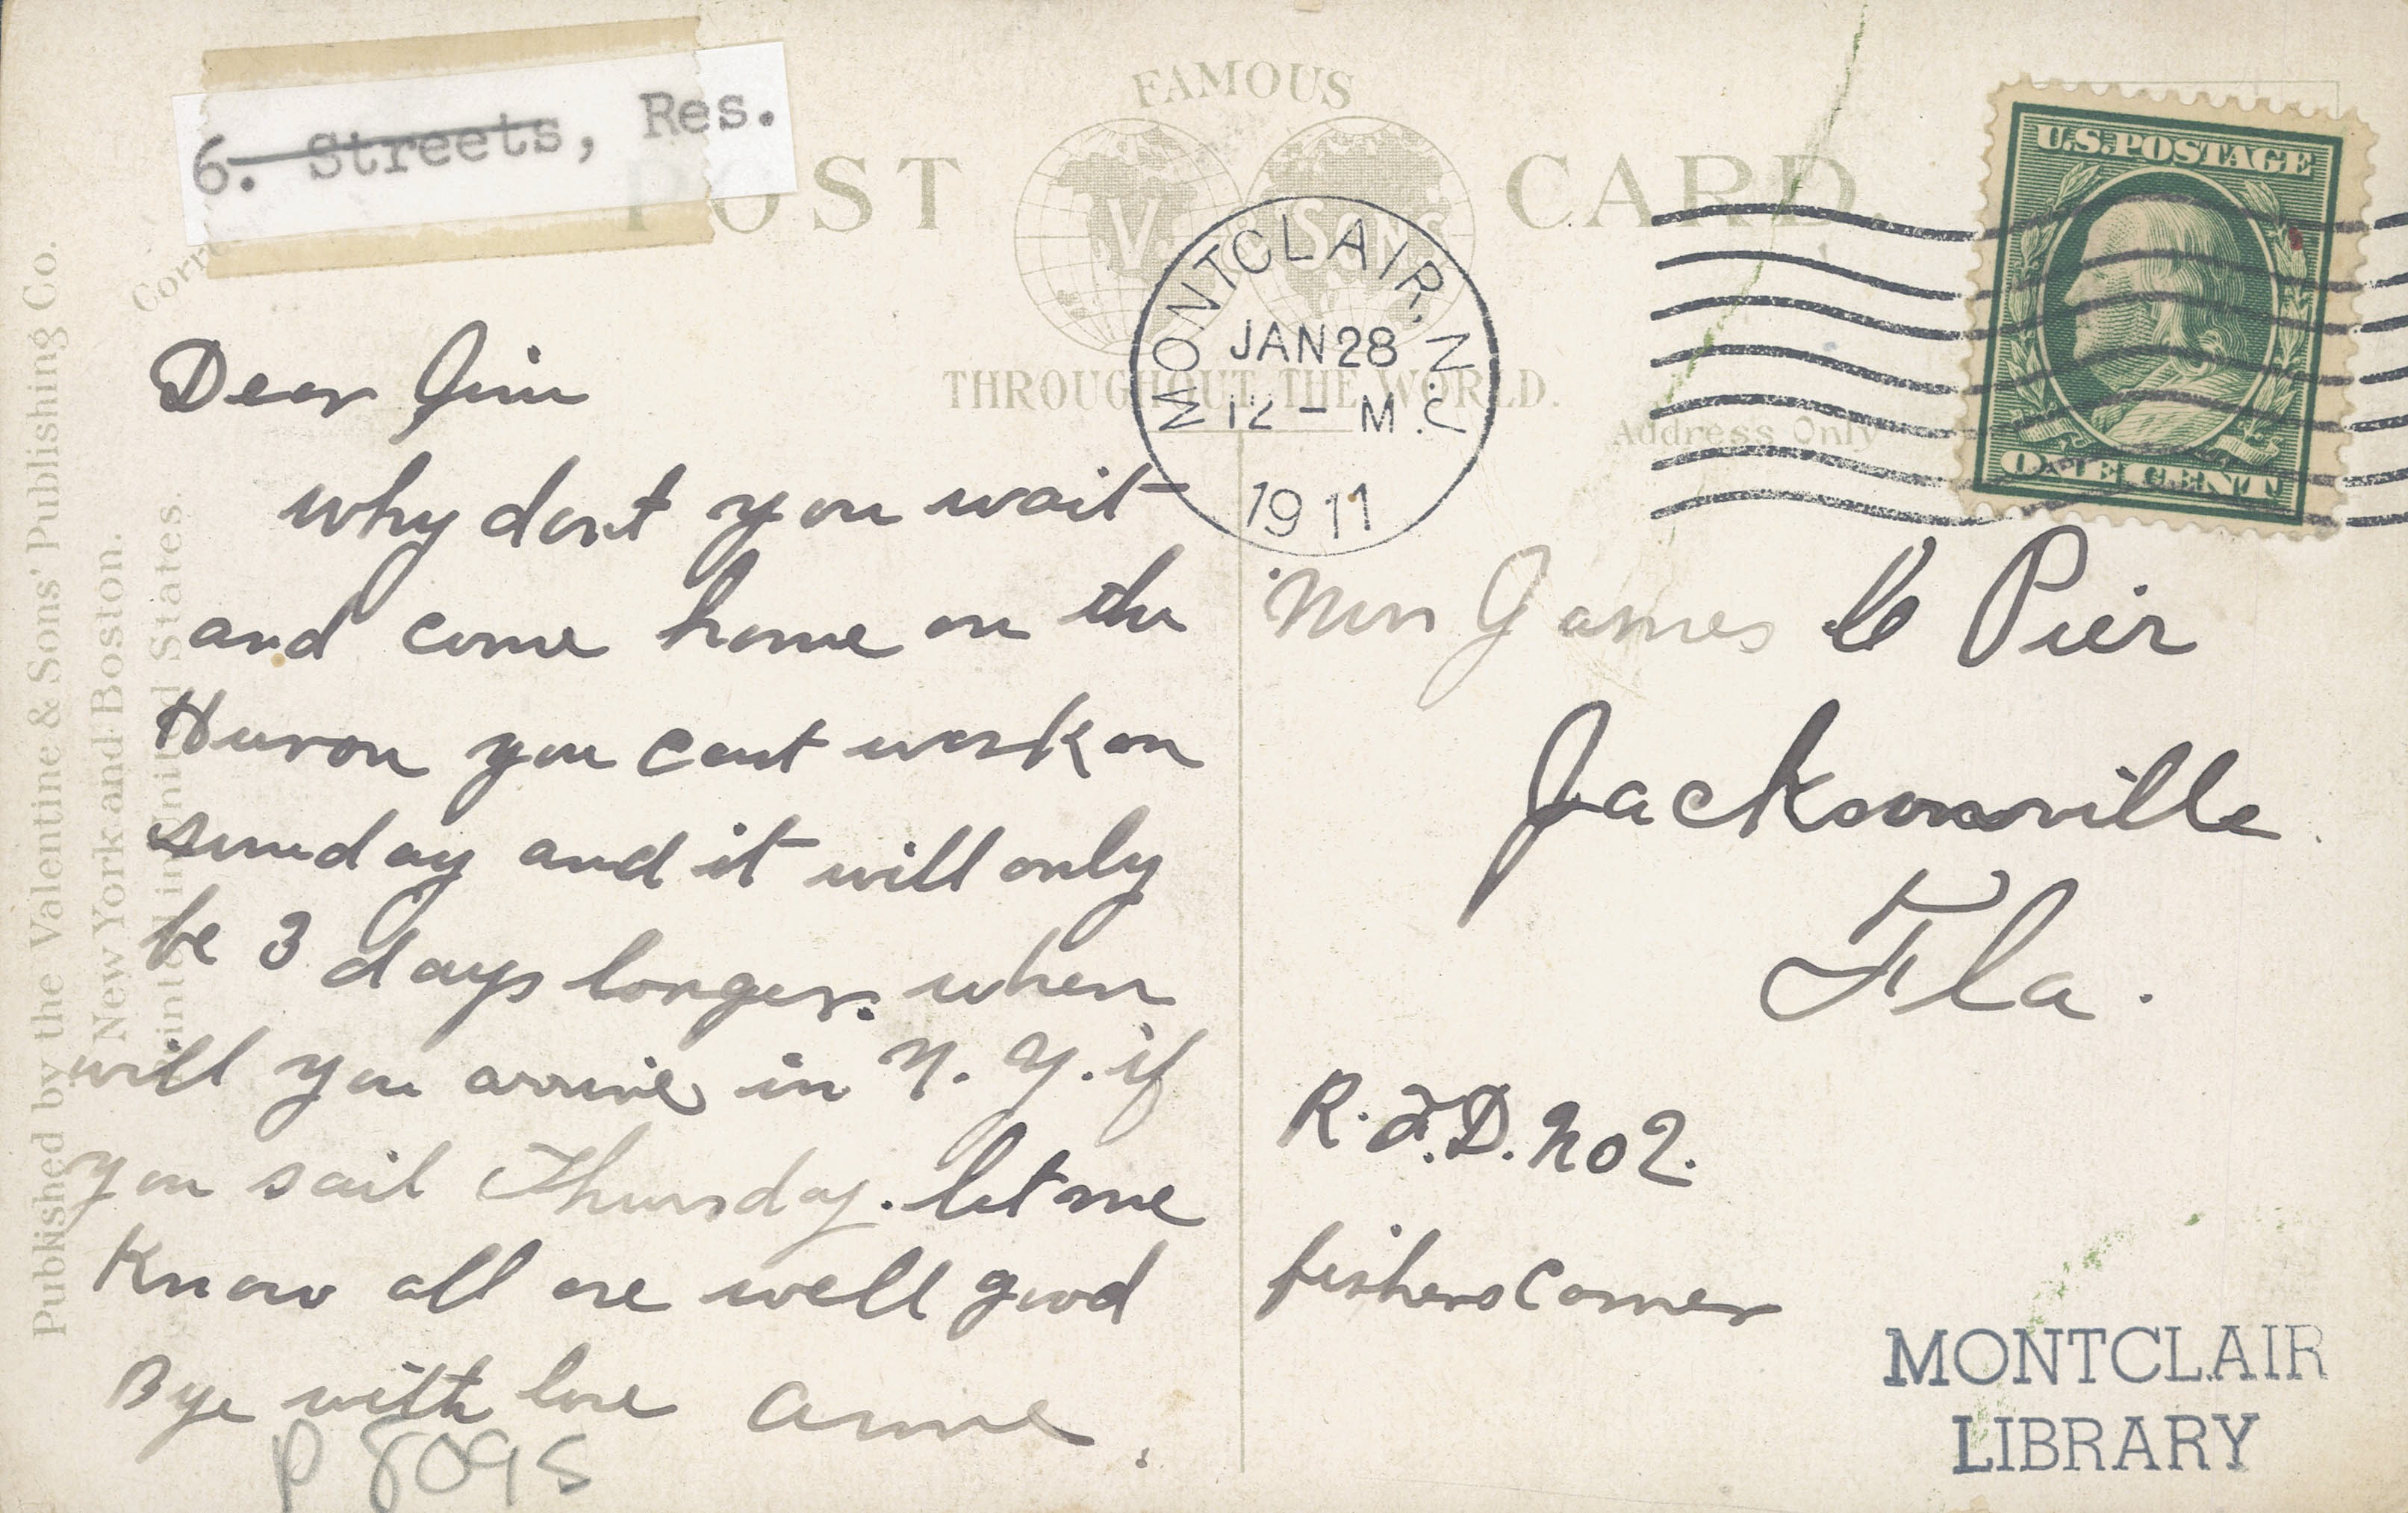 6. Streets, Res.
FAMOUS
POST CARD.
V. SONS
THROUGHOUT THE WORLD.
Address Only
U.S.POSTAGE
ONE CENT
MONTCLAIR, N.J.
JAN 28
12 - M
1911
Published by the Valentine & Sons' Publishing Co.
New York and Boston.
Printed in United States.
Dear Jim
why dont you wait
and come home on the
Huron you cant work on
sunday and it will only
be 3 days longer. when
will you arrive in N.Y. if
you sail Thursday. let me
Know all are well good
Bye with love Anne.
P 8098
James Pier
Jacksonville
Fla.
R.F.D. No 2.
fishers Corner
MONTCLAIR
LIBRARY